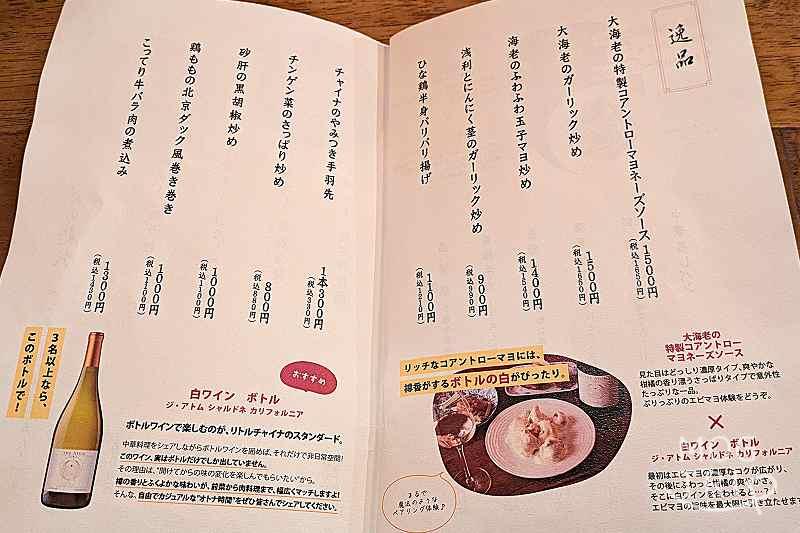 逸品
大海老の特製コアントローマヨネーズソース 1500円
(税込1650円)
大海老のガーリック炒め 1500円
(税込1650円)
海老のふわふわ玉子マヨ炒め 1400円
(税込1540円)
浅利とにんにく茎のガーリック炒め 900円
(税込990円)
ひな鶏半身パリパリ揚げ 1100円
(税込1210円)
チャイナのやみつき手羽先 1本300円
(税込330円)
チンゲン菜のさっぱり炒め 800円
(税込880円)
砂肝の黒胡椒炒め 1000円
(税込1100円)
鶏ももの北京ダック風巻き巻き 1000円
(税込1100円)
こってり牛バラ肉の煮込み 1300円
(税込1430円)
リッチなコアントローマヨには、
樽香がするボトルの白がぴったり。
まるで
魔法のような
ペアリング体験♪
大海老の
特製コアントロー
マヨネーズソース
見た目はどっしり濃厚タイプ、爽やかな
柑橘の香り漂うさっぱりタイプで意外性
たっぷりな一品。
ぷりっぷりのエビマヨ体験をどうぞ。
×
白ワイン ボトル
ジ・アトム シャルドネ カリフォルニア
最初はエビマヨの濃厚なコクが広がり、
その後にふわっと柑橘の爽やかさ。
そこに白ワインを合わせると…?
エビマヨの旨味を最大限に引き立たせます
3名以上なら、
このボトルで!
おすすめ
白ワイン ボトル
ジ・アトム シャルドネ カリフォルニア
ボトルワインで楽しむのが、リトルチャイナのスタンダード。
中華料理をシェアしながらボトルワインを囲めば、それだけで非日常空間!
このワイン、実はボトルだけでしか出していません。
その理由は、"開けてからの味の変化を楽しんでもらいたい"から。
樽の香りとふくよかな味わいが、前菜から肉料理まで、幅広くマッチしますよ!
そんな、自由でカジュアルな"オトナ時間"をぜひ皆さんでシェアしてください。